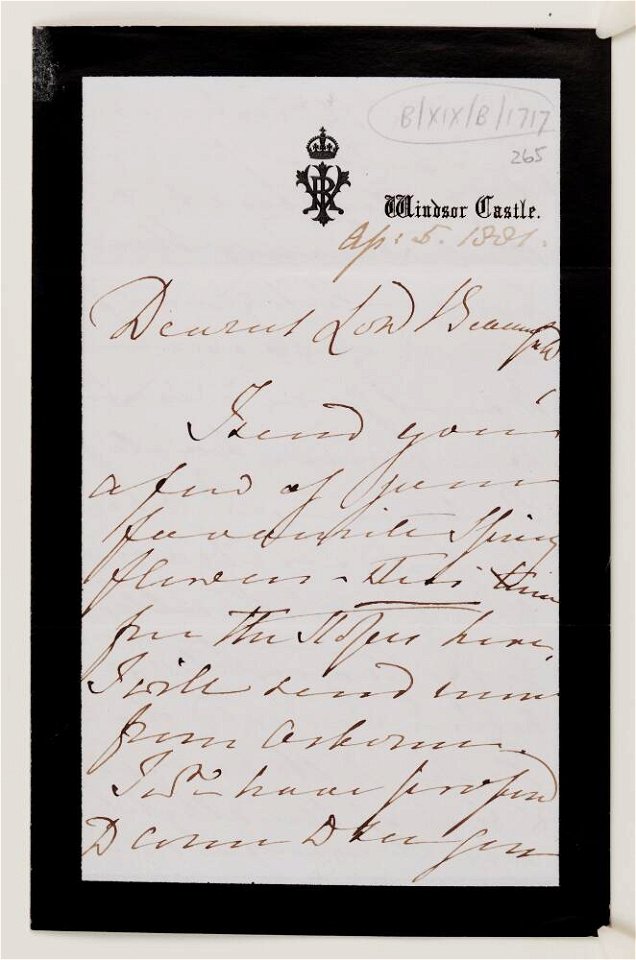 B/XIX/B/1717
265
VRI
Windsor Castle.
Ap: 5. 1881.
Dearest Lord Beaconsfield
I send you
a few of your
favourite Spring
flowers – this time
from the Slopes here.
I will send some
from Osborne.
I wd have proposed